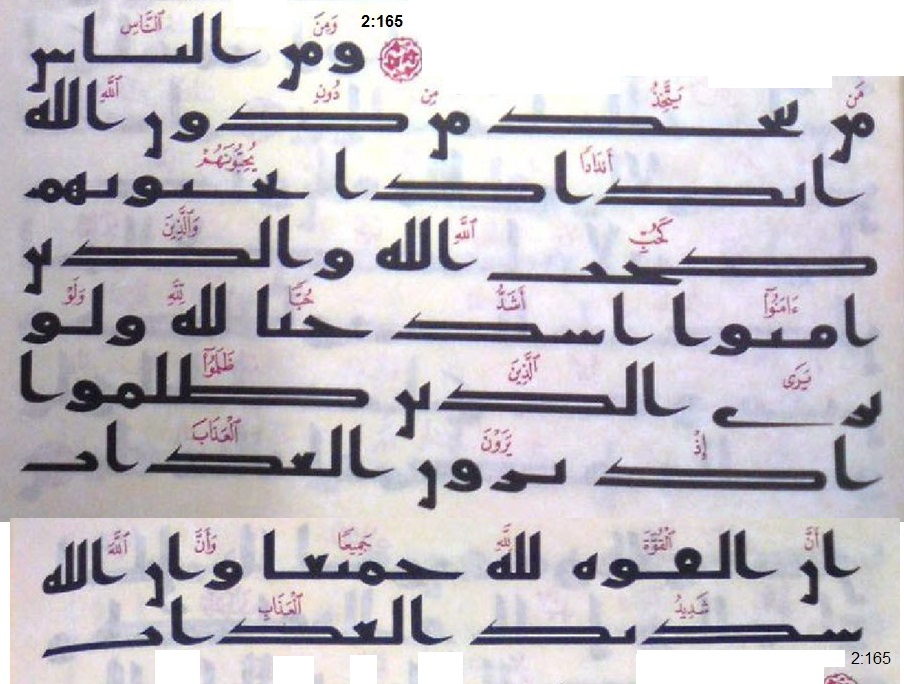 2:165
وَمِنَ ٱلنَّاسِ
ومن الناس
مَن يَتَّخِذُ مِن دُونِ ٱللَّهِ
من يتخذ من دون الله
أَندَادًا يُحِبُّونَهُمْ
اندادا يحبونهم
كَحُبِّ ٱللَّهِ وَٱلَّذِينَ
كحب الله والذين
ءَامَنُوٓا۟ أَشَدُّ حُبًّا لِّلَّهِ وَلَوْ
امنوا اشد حبا لله ولو
يَرَى ٱلَّذِينَ ظَلَمُوٓا۟
يرى الذين ظلموا
إِذْ يَرَوْنَ ٱلْعَذَابَ
اذ يرون العذاب
أَنَّ ٱلْقُوَّةَ لِلَّهِ جَمِيعًا وَأَنَّ ٱللَّهَ
ان القوه لله جميعا وان الله
شَدِيدُ ٱلْعَذَابِ
شديد العذاب
2:165